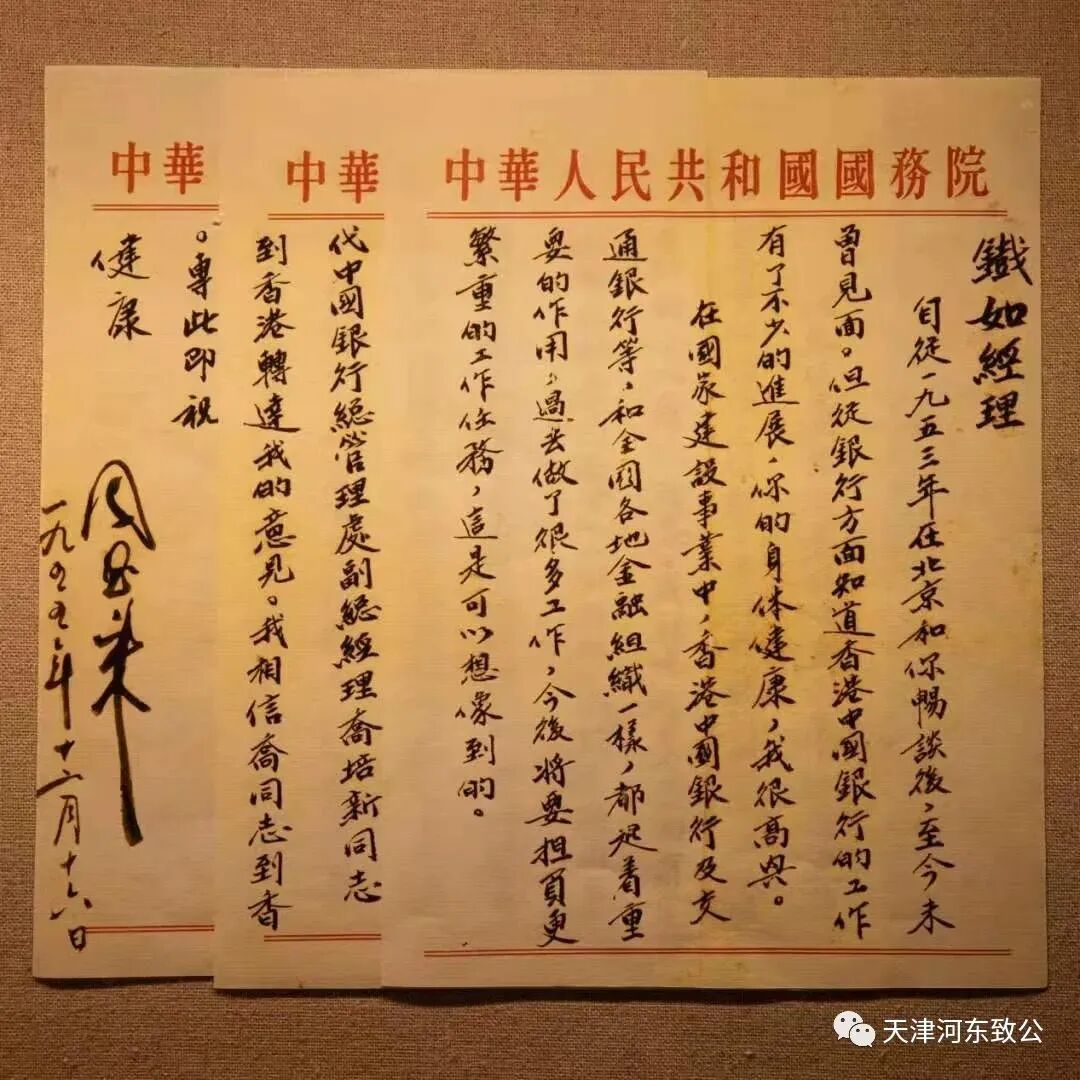 中華人民共和國國務院
鐵如經理
自從一九五三年在北京和你暢談後，至今未
曾見面。但從銀行方面知道香港中國銀行的工作
有了不少的進展，你的身体健康，我很高興。
在國家建設事業中，香港中國銀行及交
通銀行等，和全國各地金融組織一樣，都起着重
要的作用，過去做了很多工作，今後將要担負更
繁重的工作任務，這是可以想像到的。
中華
代中國銀行總管理處副總經理喬培新同志
到香港轉達我的意見。我相信喬同志到香
中華
。專此即祝
健康
周恩来
一九五五年十二月十六日
天津河东致公